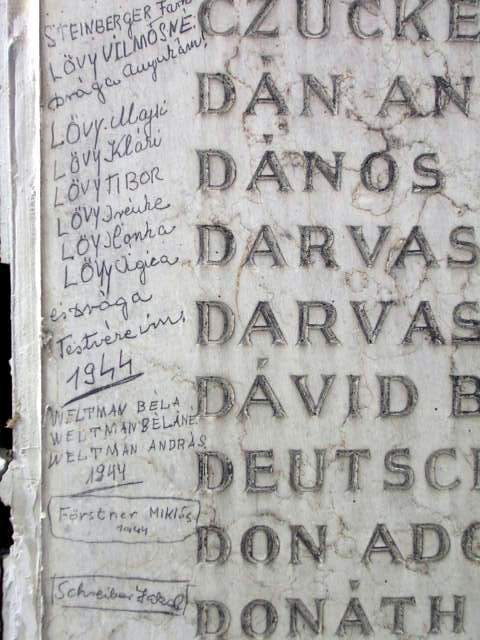 STEINBERGER
LÖVY VILMOSNÉ.
drága anyukám!
LÖVY Majsi
LÖVY Klári
LÖVY TIBOR
LÖVY Irénke
LÖVY Ilonka
LÖVY Agica
és drága
Testvéreim,
1944
WELTMAN BÉLA
WELTMAN BÉLÁNÉ
WELTMAN ANDRÁS
1944
Förstner MIKLÓS
1944
Schreiber
CZUCKE
DÁN AN
DÁNOS
DARVAS
DARVAS
DÁVID B
DEUTSC
DON ADO
DONÁTH